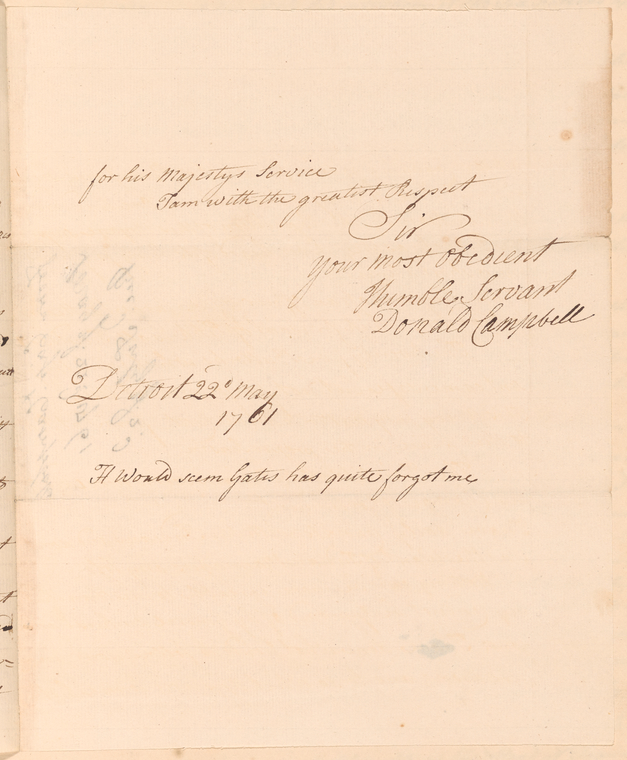 for his Majestys Service
I am with the greatest Respect
Sir
Your most obedient
Humble Servant
Donald Campbell
Detroit 22d May
1761
It Would seem Gates has quite forgot me